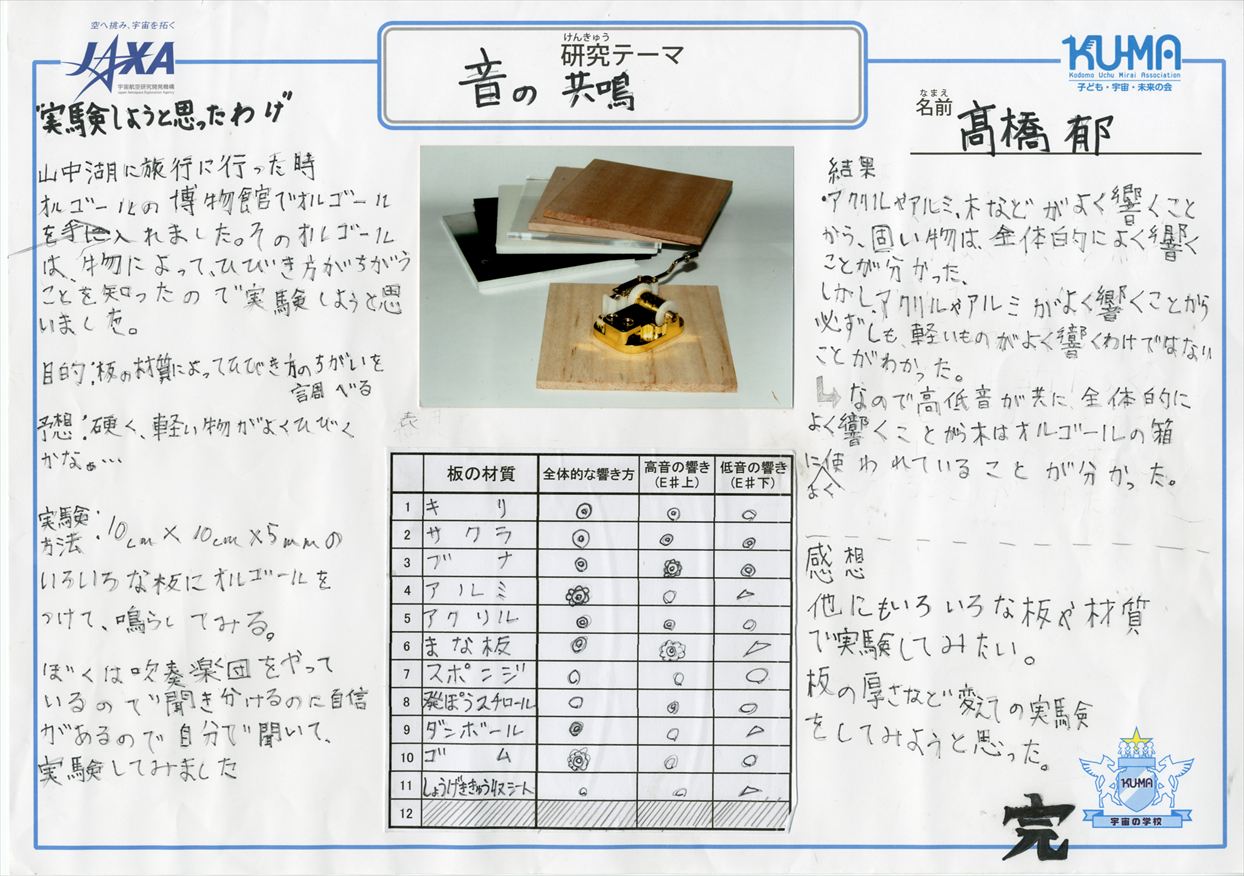 空へ挑み、宇宙を拓く
JAXA
宇宙航空研究開発機構
Japan Aerospace Exploration Agency
けんきゅう
研究テーマ
音の共鳴
KU-MA
Kodomo Uchu Mirai Association
子ども・宇宙・未来の会
なまえ
名前
髙橋 郁
実験しようと思ったわけ
山中湖に旅行に行った時
オルゴールの博物館でオルゴール
を手に入れました。そのオルゴール
は、物によって、ひびき方がちがう
ことを知ったので実験しようと思
いました。
目的:板の材質によってひびき方のちがいを
調べる
予想:硬く、軽い物がよくひびく
かなぁ…
実験方法:10cm×10cm×5mmの
いろいろな板にオルゴールを
つけて、鳴らしてみる。
ぼくは吹奏楽団をやって
いるので聞き分けるのに自信
があるので自分で聞いて、
実験してみました
表
板の材質 全体的な響き方 高音の響き(E♯上) 低音の響き(E♯下)
1 キリ ◎ ◎ ○
2 サクラ ◎ ◎ ◎
3 ブナ ◎ ◎
4 アルミ ○ △
5 アクリル ◎ ◎ ○
6 まな板 ◎ △
7 スポンジ ○ ○ ○
8 発ぽうスチロール ○ ◎ ○
9 ダンボール ◎ ○ △
10 ゴム ○ ○
11 しょうげききゅう収シート ○ ○ △
12
結果
・アクリルやアルミ、木などがよく響くこと
から、固い物は、全体的によく響く
ことが分かった。
しかし、アクリルやアルミがよく響くことから
必ずしも、軽いものがよく響くわけではない
ことがわかった。
なので高低音が共に、全体的に
よく響くことから木はオルゴールの箱
によく使われていることが分かった。
感想
他にもいろいろな板や材質
で実験してみたい。
板の厚さなど変えての実験
をしてみようと思った。
KU-MA
宇宙の学校
完